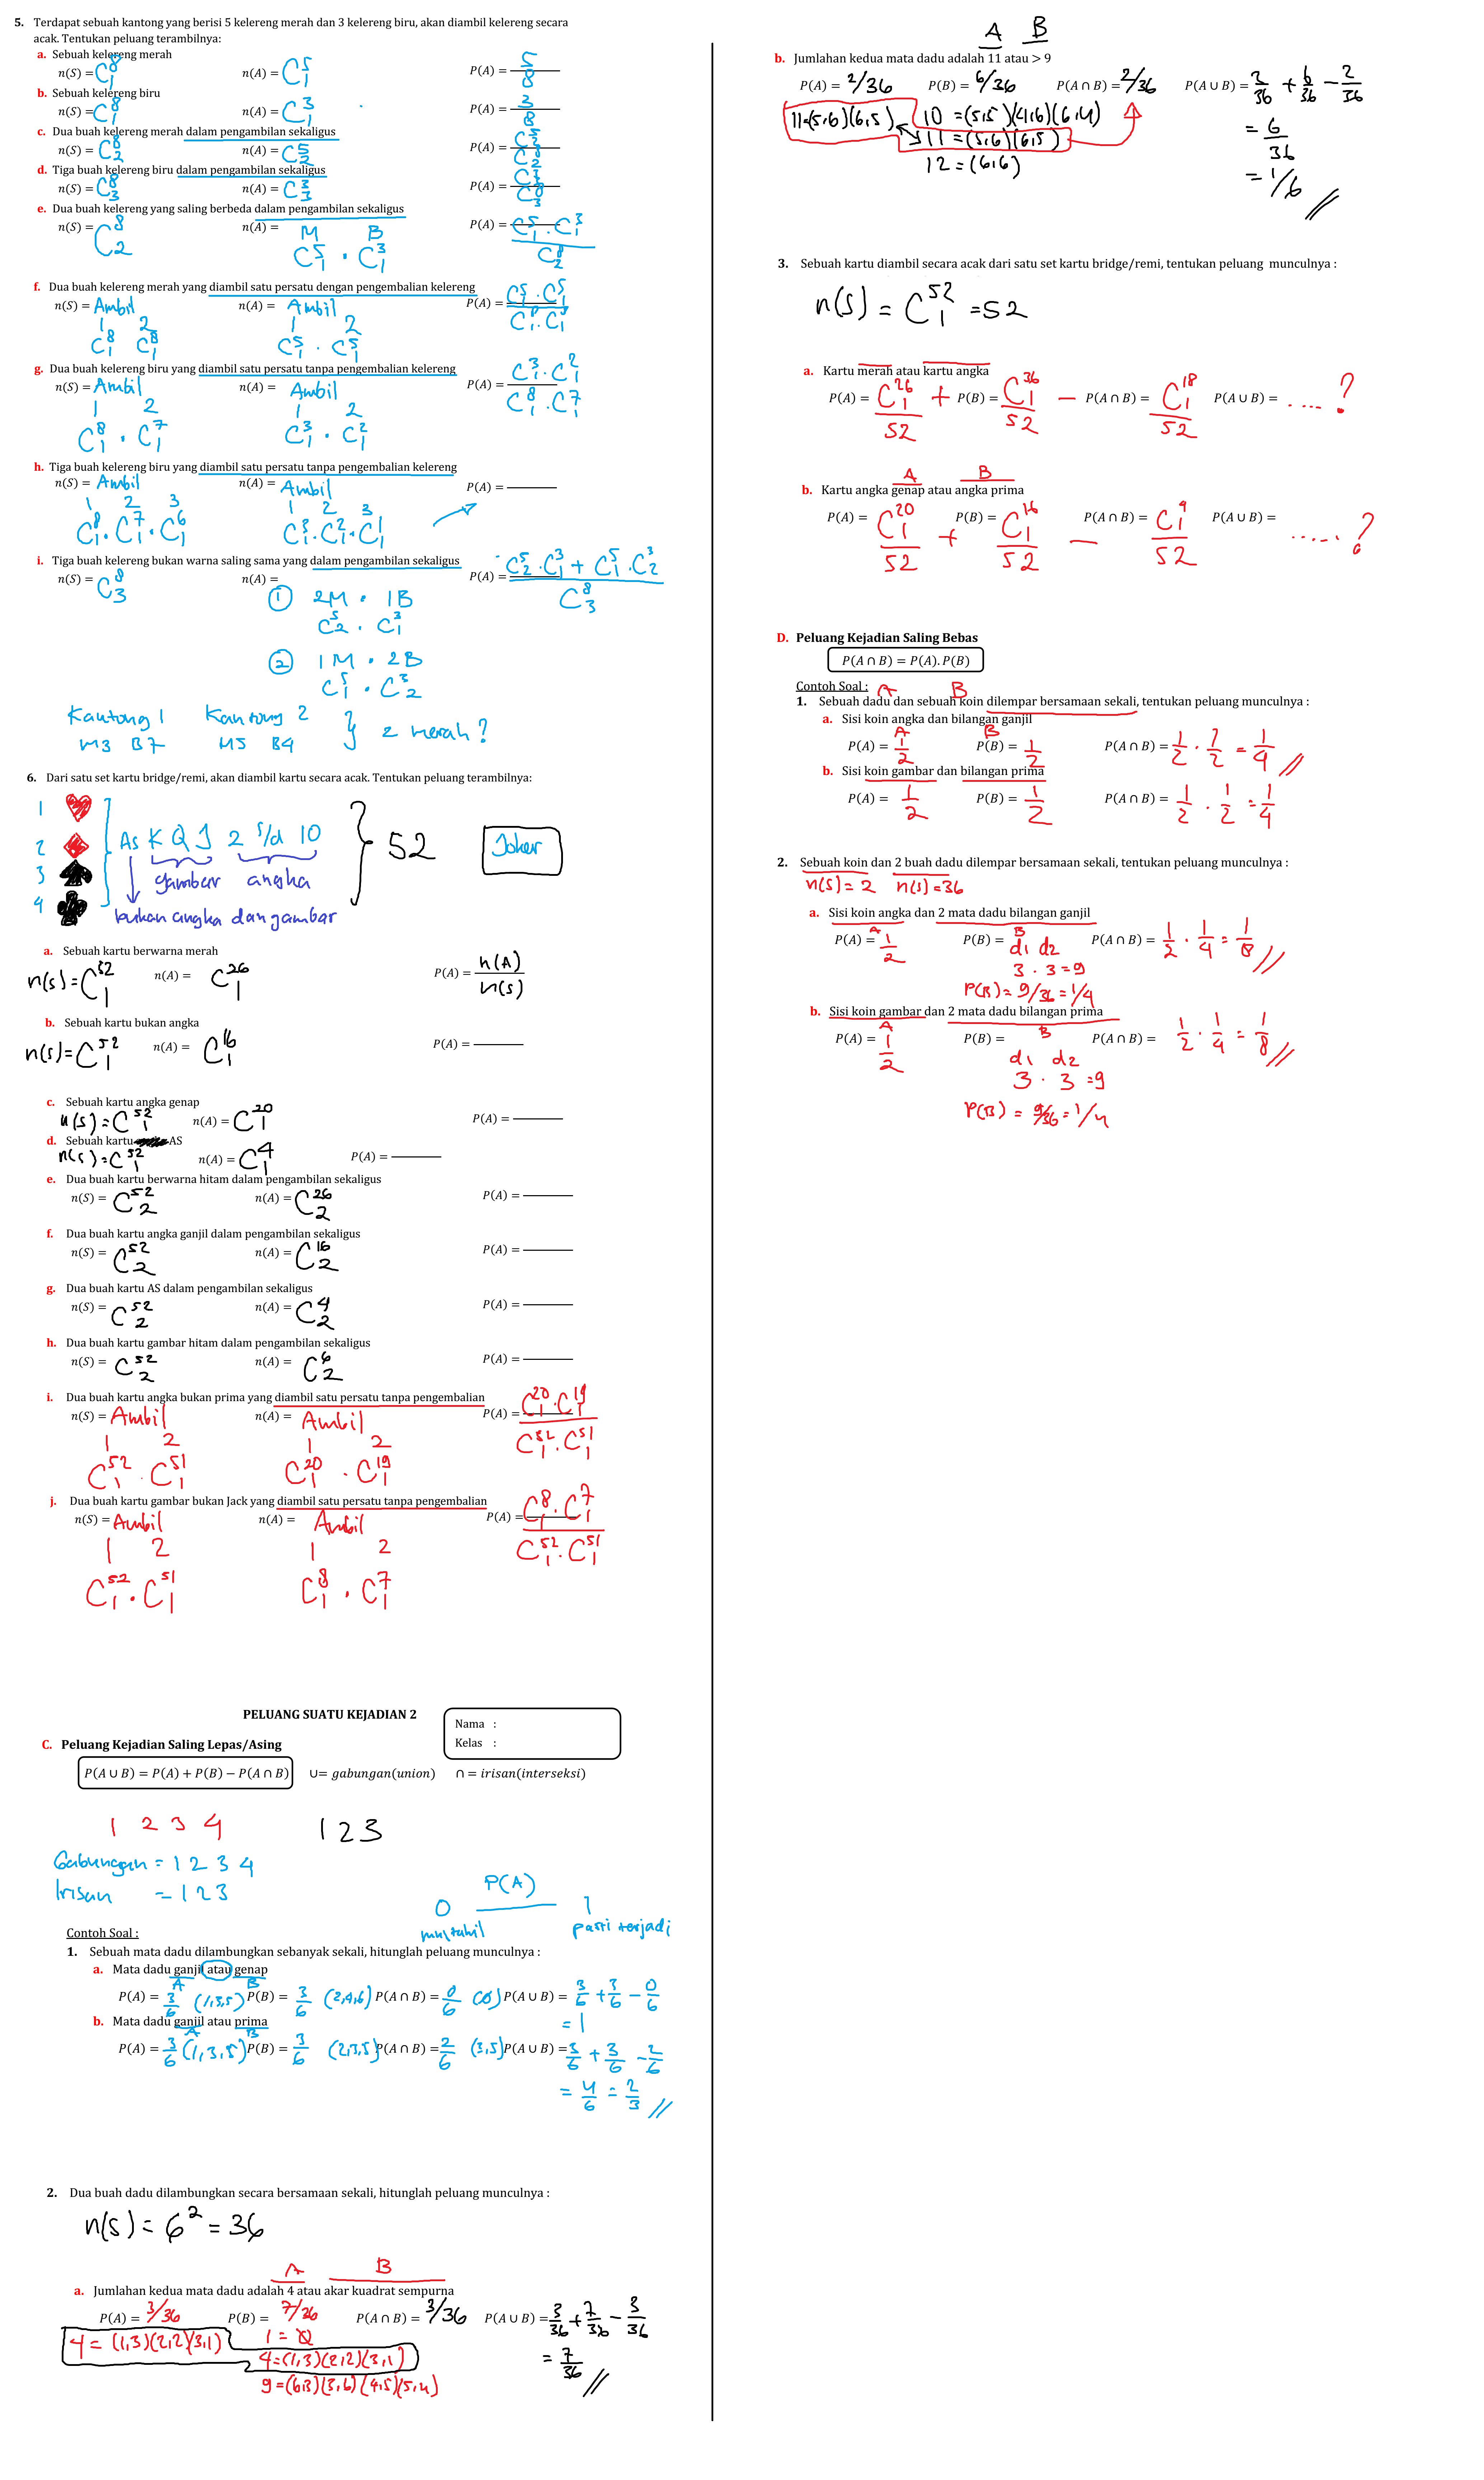 5. Terdapat sebuah kantong yang berisi 5 kelereng merah dan 3 kelereng biru, akan diambil kelereng secara
acak. Tentukan peluang terambilnya:
a. Sebuah kelereng merah
n(S) = C⁸₁ n(A) = C⁵₁ P(A) = 5/8
b. Sebuah kelereng biru
n(S) = C⁸₁ n(A) = C³₁ P(A) = 3/8
c. Dua buah kelereng merah dalam pengambilan sekaligus
n(S) = C⁸₂ n(A) = C⁵₂ P(A) = C⁵₂/C⁸₂
d. Tiga buah kelereng biru dalam pengambilan sekaligus
n(S) = C⁸₃ n(A) = C³₃ P(A) = C³₃/C⁸₃
e. Dua buah kelereng yang saling berbeda dalam pengambilan sekaligus
n(S) = C⁸₂ n(A) = M B P(A) = C⁵₁ . C³₁ / C⁸₂
C⁵₁ . C³₁
f. Dua buah kelereng merah yang diambil satu persatu dengan pengembalian kelereng
n(S) = Ambil n(A) = Ambil P(A) = C⁵₁ . C⁵₁ / C⁸₁ . C⁸₁
1 2 1 2
C⁸₁ C⁸₁ C⁵₁ . C⁵₁
g. Dua buah kelereng biru yang diambil satu persatu tanpa pengembalian kelereng
n(S) = Ambil n(A) = Ambil P(A) = C³₁ . C²₁ / C⁸₁ . C⁷₁
1 2 1 2
C⁸₁ . C⁷₁ C³₁ . C²₁
h. Tiga buah kelereng biru yang diambil satu persatu tanpa pengembalian kelereng
n(S) = Ambil n(A) = Ambil P(A) =
1 2 3 1 2 3
C⁸₁ . C⁷₁ . C⁶₁ C³₁ . C²₁ . C¹₁
i. Tiga buah kelereng bukan warna saling sama yang dalam pengambilan sekaligus
n(S) = C⁸₃ n(A) = P(A) = C⁵₂ . C³₁ + C⁵₁ . C³₂ / C⁸₃
① 2M . 1B
C⁵₂ . C³₁
② 1M . 2B
C⁵₁ . C³₂
Kantong 1 Kantong 2 } 2 merah ?
M3 B7 M5 B4
6. Dari satu set kartu bridge/remi, akan diambil kartu secara acak. Tentukan peluang terambilnya:
1 ♥
2 ♦ As K Q J 2 s/d 10 } 52 Joker
3 ♠ gambar angka
4 ♣ bukan angka dan gambar
a. Sebuah kartu berwarna merah
n(s) = C⁵²₁ n(A) = C²⁶₁ P(A) = n(A)/n(s)
b. Sebuah kartu bukan angka
n(s) = C⁵²₁ n(A) = C¹⁶₁ P(A) =
c. Sebuah kartu angka genap
n(s) = C⁵²₁ n(A) = C²⁰₁ P(A) =
d. Sebuah kartu AS
n(s) = C⁵²₁ n(A) = C⁴₁ P(A) =
e. Dua buah kartu berwarna hitam dalam pengambilan sekaligus
n(S) = C⁵²₂ n(A) = C²⁶₂ P(A) =
f. Dua buah kartu angka ganjil dalam pengambilan sekaligus
n(S) = C⁵²₂ n(A) = C¹⁶₂ P(A) =
g. Dua buah kartu AS dalam pengambilan sekaligus
n(S) = C⁵²₂ n(A) = C⁴₂ P(A) =
h. Dua buah kartu gambar hitam dalam pengambilan sekaligus
n(S) = C⁵²₂ n(A) = C⁶₂ P(A) =
i. Dua buah kartu angka bukan prima yang diambil satu persatu tanpa pengembalian
n(S) = Ambil n(A) = Ambil P(A) = C²⁰₁ . C¹⁹₁ / C⁵²₁ . C⁵¹₁
1 2 1 2
C⁵²₁ . C⁵¹₁ C²⁰₁ . C¹⁹₁
j. Dua buah kartu gambar bukan Jack yang diambil satu persatu tanpa pengembalian
n(S) = Ambil n(A) = Ambil P(A) = C⁸₁ . C⁷₁ / C⁵²₁ . C⁵¹₁
1 2 1 2
C⁵²₁ . C⁵¹₁ C⁸₁ . C⁷₁
PELUANG SUATU KEJADIAN 2
Nama :
Kelas :
C. Peluang Kejadian Saling Lepas/Asing
P(A ∪ B) = P(A) + P(B) − P(A ∩ B) ∪= gabungan(union) ∩ = irisan(interseksi)
1 2 3 4 1 2 3
Gabungan = 1 2 3 4
Irisan = 1 2 3
P(A)
0 1
mustahil pasti terjadi
Contoh Soal :
1. Sebuah mata dadu dilambungkan sebanyak sekali, hitunglah peluang munculnya :
a. Mata dadu ganjil atau genap
A B
P(A) = 3/6 (1,3,5) P(B) = 3/6 (2,4,6) P(A ∩ B) = 0/6 (∅) P(A ∪ B) = 3/6 + 3/6 − 0/6
= 1
b. Mata dadu ganjil atau prima
A B
P(A) = 3/6 (1,3,5) P(B) = 3/6 (2,3,5) P(A ∩ B) = 2/6 (3,5) P(A ∪ B) = 3/6 + 3/6 − 2/6
= 4/6 = 2/3 //
2. Dua buah dadu dilambungkan secara bersamaan sekali, hitunglah peluang munculnya :
n(s) = 6² = 36
A B
a. Jumlahan kedua mata dadu adalah 4 atau akar kuadrat sempurna
P(A) = 3/36 P(B) = 7/36 P(A ∩ B) = 3/36 P(A ∪ B) = 3/36 + 7/36 − 3/36
4 = (1,3)(2,2)(3,1) 1 = ∅
4 = (1,3)(2,2)(3,1) = 7/36 //
9 = (6,3)(3,6)(4,5)(5,4)
A B
b. Jumlahan kedua mata dadu adalah 11 atau > 9
P(A) = 2/36 P(B) = 6/36 P(A ∩ B) = 2/36 P(A ∪ B) = 2/36 + 6/36 − 2/36
11 = (5,6)(6,5) 10 = (5,5)(4,6)(6,4)
11 = (5,6)(6,5) = 6/36
12 = (6,6) = 1/6 //
3. Sebuah kartu diambil secara acak dari satu set kartu bridge/remi, tentukan peluang munculnya :
n(s) = C⁵²₁ = 52
a. Kartu merah atau kartu angka
P(A) = C²⁶₁/52 + P(B) = C³⁶₁/52 − P(A ∩ B) = C¹⁸₁/52 P(A ∪ B) = .... ?
A B
b. Kartu angka genap atau angka prima
P(A) = C²⁰₁/52 + P(B) = C¹⁶₁/52 − P(A ∩ B) = C⁴₁/52 P(A ∪ B) = ..... ?
D. Peluang Kejadian Saling Bebas
P(A ∩ B) = P(A). P(B)
Contoh Soal : A B
1. Sebuah dadu dan sebuah koin dilempar bersamaan sekali, tentukan peluang munculnya :
a. Sisi koin angka dan bilangan ganjil
A B
P(A) = 1/2 P(B) = 1/2 P(A ∩ B) = 1/2 . 1/2 = 1/4 //
b. Sisi koin gambar dan bilangan prima
P(A) = 1/2 P(B) = 1/2 P(A ∩ B) = 1/2 . 1/2 = 1/4
2. Sebuah koin dan 2 buah dadu dilempar bersamaan sekali, tentukan peluang munculnya :
n(s) = 2 n(s) = 36
a. Sisi koin angka dan 2 mata dadu bilangan ganjil
A B
P(A) = 1/2 P(B) = d1 d2 P(A ∩ B) = 1/2 . 1/4 = 1/8 //
3 . 3 = 9
P(B) = 9/36 = 1/4
b. Sisi koin gambar dan 2 mata dadu bilangan prima
A B
P(A) = 1/2 P(B) = P(A ∩ B) = 1/2 . 1/4 = 1/8 //
d1 d2
3 . 3 = 9
P(B) = 9/36 = 1/4